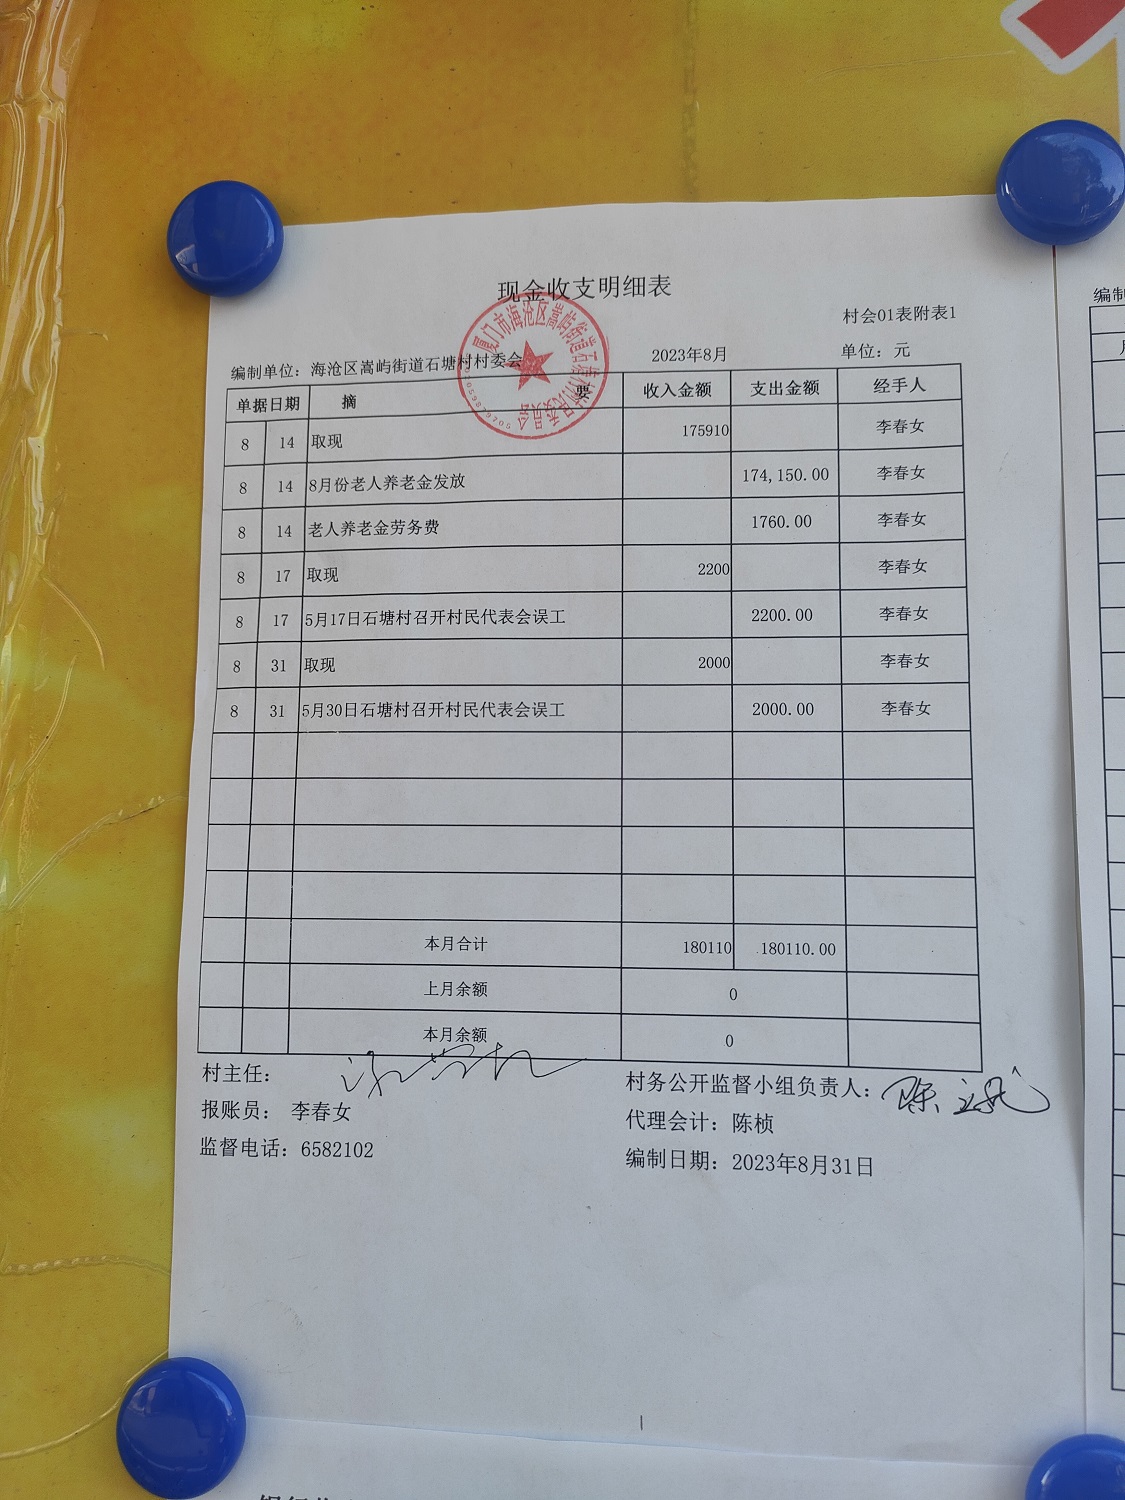 现金收支明细表
村会01表附表1
编制单位：海沧区嵩屿街道石塘村村委会 2023年8月 单位：元
单据日期 摘 要 收入金额 支出金额 经手人
8 14 取现 175910 李春女
8 14 8月份老人养老金发放 174,150.00 李春女
8 14 老人养老金劳务费 1760.00 李春女
8 17 取现 2200 李春女
8 17 5月17日石塘村召开村民代表会误工 2200.00 李春女
8 31 取现 2000 李春女
8 31 5月30日石塘村召开村民代表会误工 2000.00 李春女
本月合计 180110 180110.00
上月余额 0
本月余额 0
村主任：
村务公开监督小组负责人：
报账员： 李春女
代理会计：陈桢
监督电话：6582102
编制日期：2023年8月31日
编制